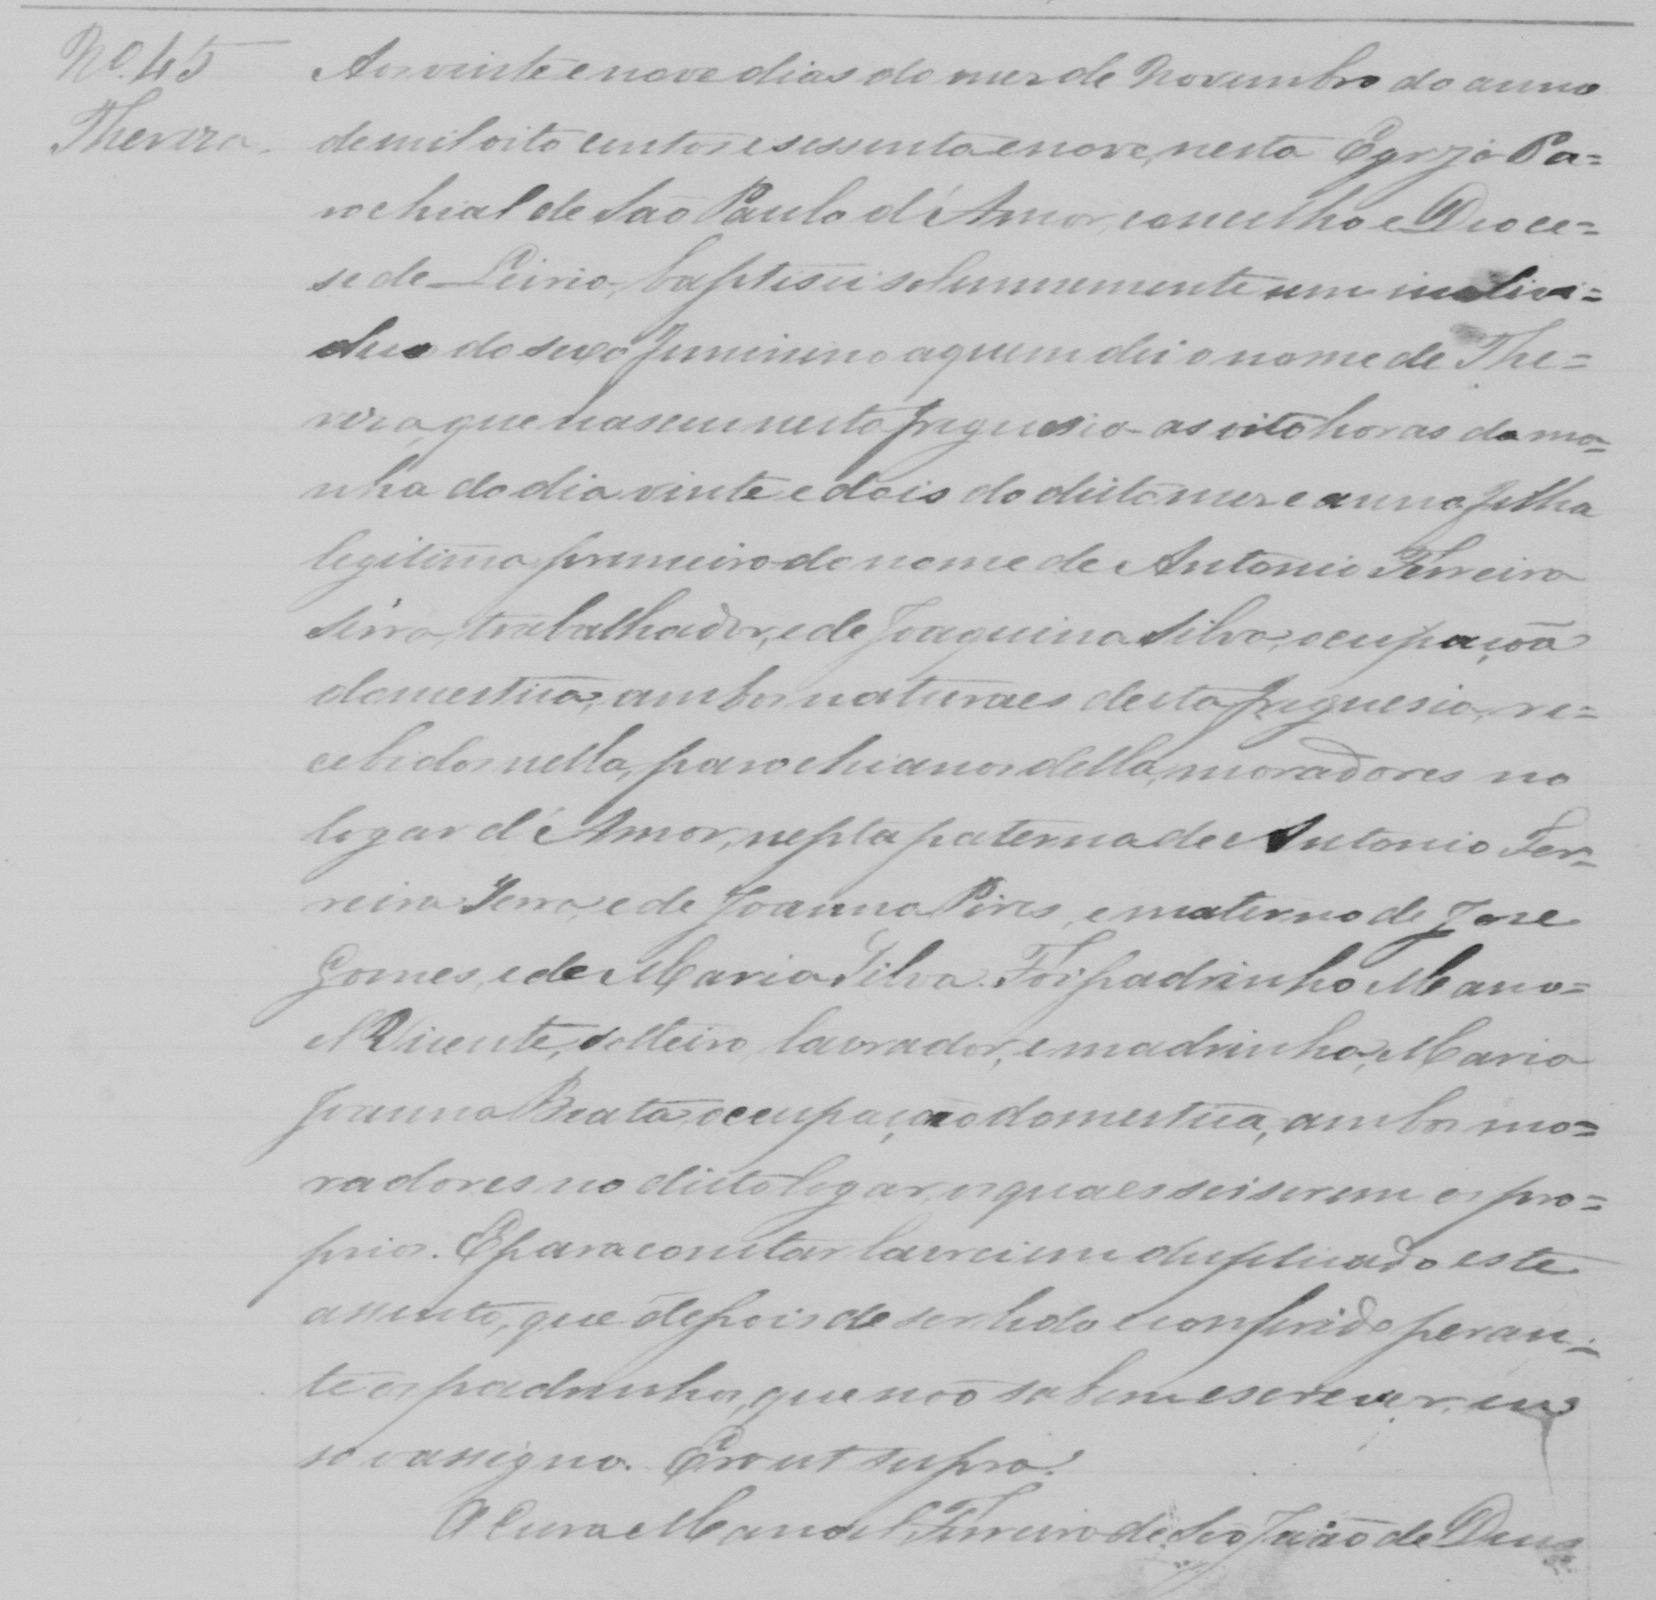 Nº 45
Thereza.
Aos vinte e nove dias do mez de Novembro do anno
de mil oito centos e sessenta e nove, nesta Egreja Pa=
rochial de São Paulo d'Amor, concelho e Dioce=
se de Leiria, baptisei solemnemente um indivi=
duo do sexo feminino a quem dei o nome de The=
reza, que nasceu nesta freguesia as oito horas da ma=
nha do dia vinte e dois do dicto mez e anno, filha
legitima primeira do nome de Antonio Ferreira
Serra, trabalhador, e de Joaquina Silva, ocupação
domestica, ambos naturaes desta freguesia, re=
cebidos nella, parochianos della, moradores no
logar d'Amor, nepta paterna de Antonio Fer=
reira Serra, e de Joanna Pires, e materna de Jose
Gomes, e de Maria Silva. Foi padrinho Mano=
el Vicente, solteiro, lavrador, e madrinha, Maria
Joanna Beata, occupação domestica, ambos mo=
radores no dicto logar, os quaes sei serem os pro=
prios. E para constar lavrei em duplicado este
assento, que depois de ser lido e conferido peran=
te os padrinhos, que não sabem escrever, eu
so o assigno. Era ut supra.
O Cura Manoel Ferreira de São João de Deus